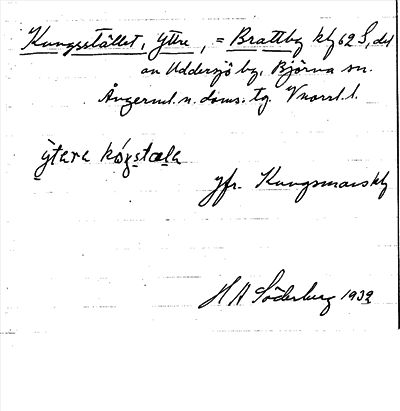 Kungsstället, Yttre, = Brattby kbg 62 S, del
av Uddersjö by, Björna sn.
Ångerml. n. doms. tg. Vnorrl. l.
ytera kåŋstæla
jfr. Kungsmarskbg
H A Söderberg 1932